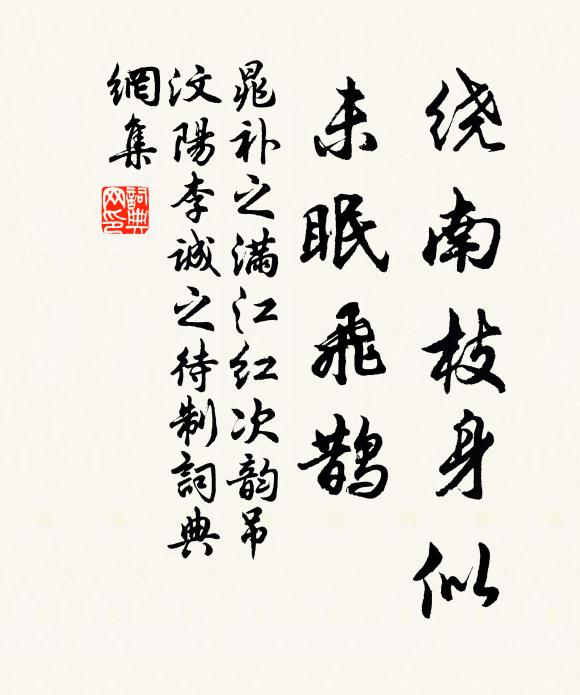 绕南枝身似
未眠飛鹊
晁补之满江红次韵吊
汶陽李诚之待制詞典
網集
詞典網印